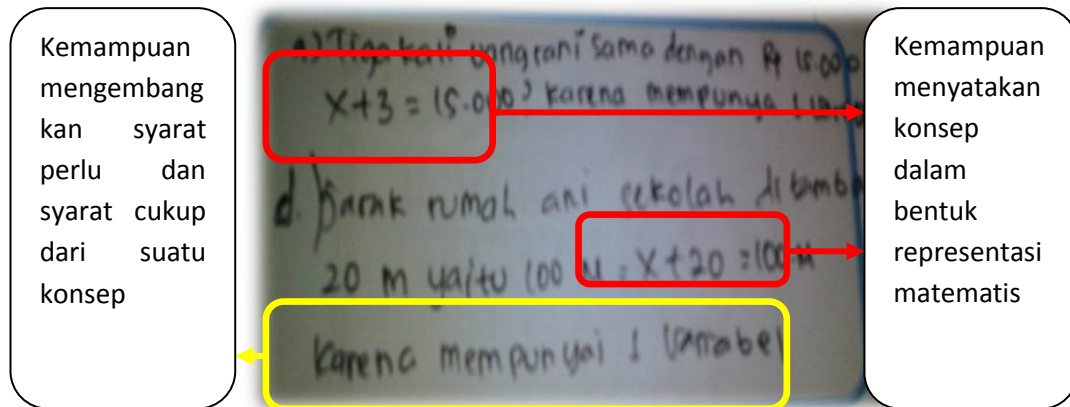 Kemampuan
mengembang
kan syarat
perlu dan
syarat cukup
dari suatu
konsep
Tiga kali uang rani sama dengan Rp 15.000
x+3 = 15.000, karena mempunya
d. Jarak rumah ani sekolah ditamb
20 m yaitu 100 M = x+20 = 100 M
Karena mempunyai 1 Variabel
Kemampuan
menyatakan
konsep
dalam
bentuk
representasi
matematis